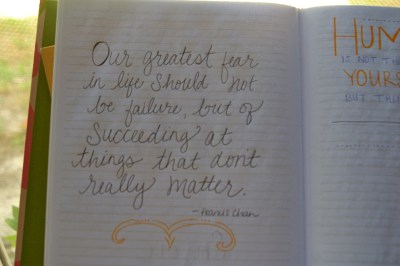 Our greatest fear
in life should not
be failure, but of
Succeeding at
things that don't
really matter.
— Francis Chan
HUM
IS NOT TH
YOURS
BUT THIN